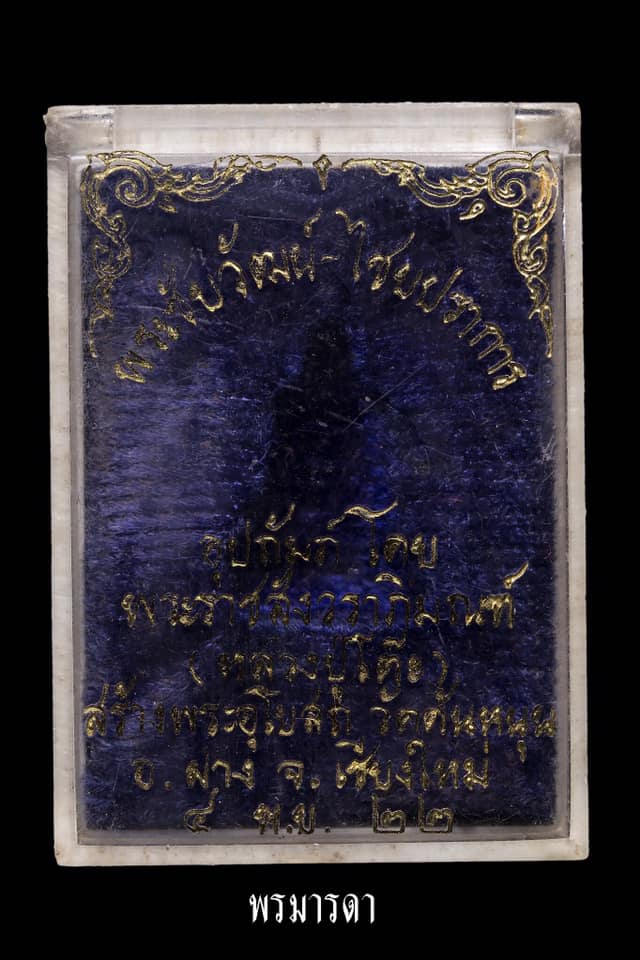 พระชัยวัฒน์-ไชยปราการ
อุปถัมภ์ โดย
พระราชสังวราภิมณฑ์
(หลวงปู่โต๊ะ)
สร้างพระอุโบสถ วัดต้นหนุน
อ. ฝาง จ. เชียงใหม่
๔ พ.ย. ๒๒
พรมารดา